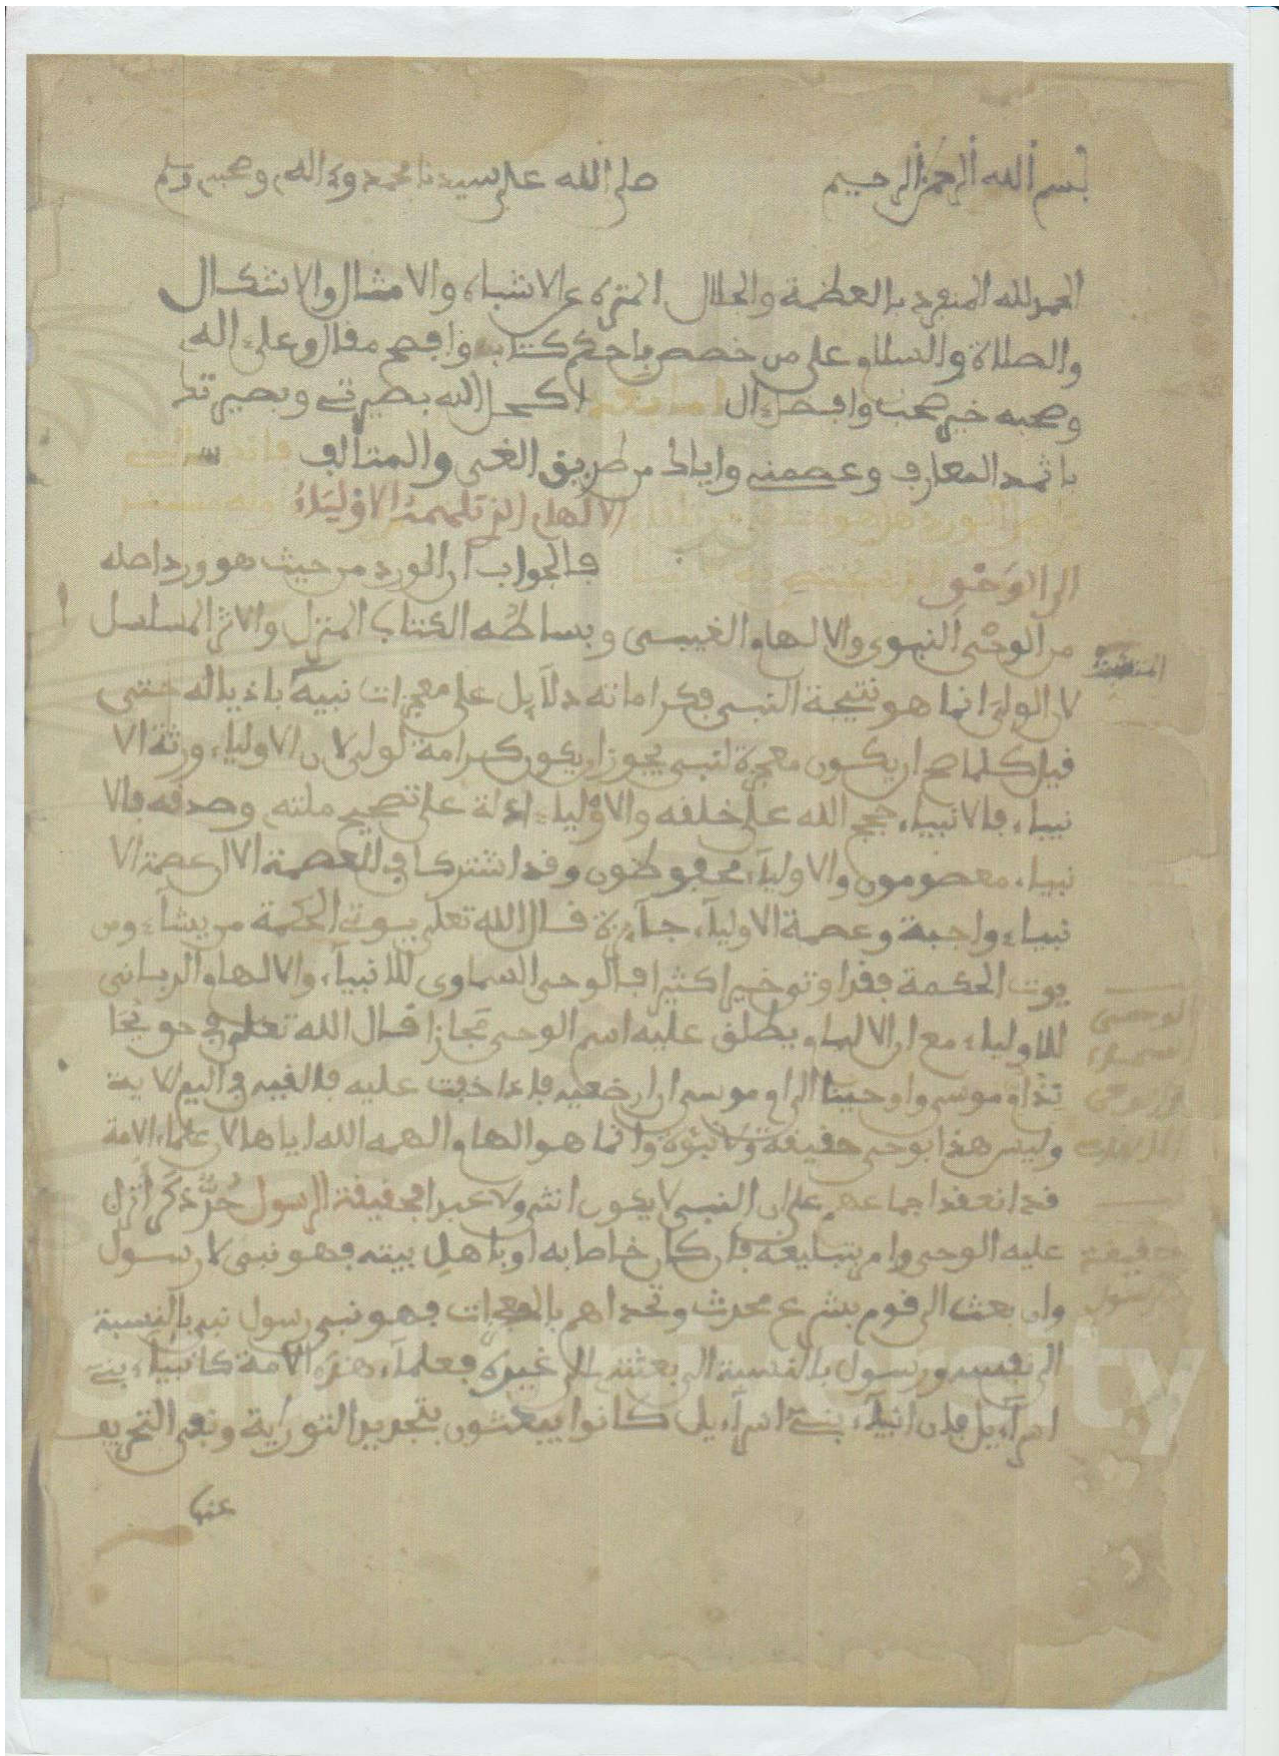 بسم الله الرحمن الرحيم صلى الله على سيدنا محمد وعلى اله وصحبه وسلم
الحمد لله المنفرد بالعظمة والجلال المنزه عن الاشباه والامثال والاشكال
والصلاة والسلام على من خصص باحكم كتاب وافصح مقال وعلى اله
وصحبه خير صحب وافضل ال اما بعد كحل الله بصيرتي وبصيرتك
باثمد المعارف وعصمني واياك من طريق الغي والمتالف
الالهام الذي تلهمه الاولياء
الى الوحي فالجواب ان الورد من حيث هو ورد اصله
من الوحي النبوي والالهام الغيبي وبساطه الكتاب المنزل والاثر المسلسل
لان الولي انما هو نتيجة النبي فكراماته دلايل على معجزات نبيه باذياله حتى
قيل كلما صح ان يكون معجزة لنبي يجوز ان يكون كرامة لولي لان الاولياء ورثة الا
نبياء فالانبياء حجج الله على خلقه والاولياء ادلة على تصحيح ملته وصدقه فالا
نبياء معصومون والاولياء محفوظون وقد اشتركا في العصمة الا ان عصمة الا
نبياء واجبة وعصمة الاولياء جايزة قال الله تعلى يوتي الحكمة من يشاء ومن
يوت الحكمة فقد اوتي خيرا كثيرا فالوحي السماوي للانبياء والالهام الرباني
للاولياء مع ان الالهام يطلق عليه اسم الوحي مجازا قال الله تعلى في حق
ام موسى واوحينا الى ام موسى ان ارضعيه فاذا خفت عليه فالقيه في اليم الاية
وليس هذا بوحي حقيقة ولا نبوة وانما هو الهام الهمه الله اياها لان علماء الامة
قد انعقد اجماعهم على ان النبي لا يكون انثى ولا عبدا فحقيقة الرسول حر ذكر انزل
عليه الوحي وامر بتبليغه فان كان خاصا به او باهل بيته فهو نبي لا رسول
وان بعث الى قوم بشرع محدث وتحداهم بالمعجزات فهو نبي رسول نبي بالنسبة
الى نفسه ورسول بالنسبة الى بعثته الى غيره فعلماء هذه الامة كانبياء بني
اسراءيل فان انبياء بني اسراءيل كانوا يبعثون بتجديد التوراية ونفي التحريف
عنها
الوحي
حقيقة
الرسول